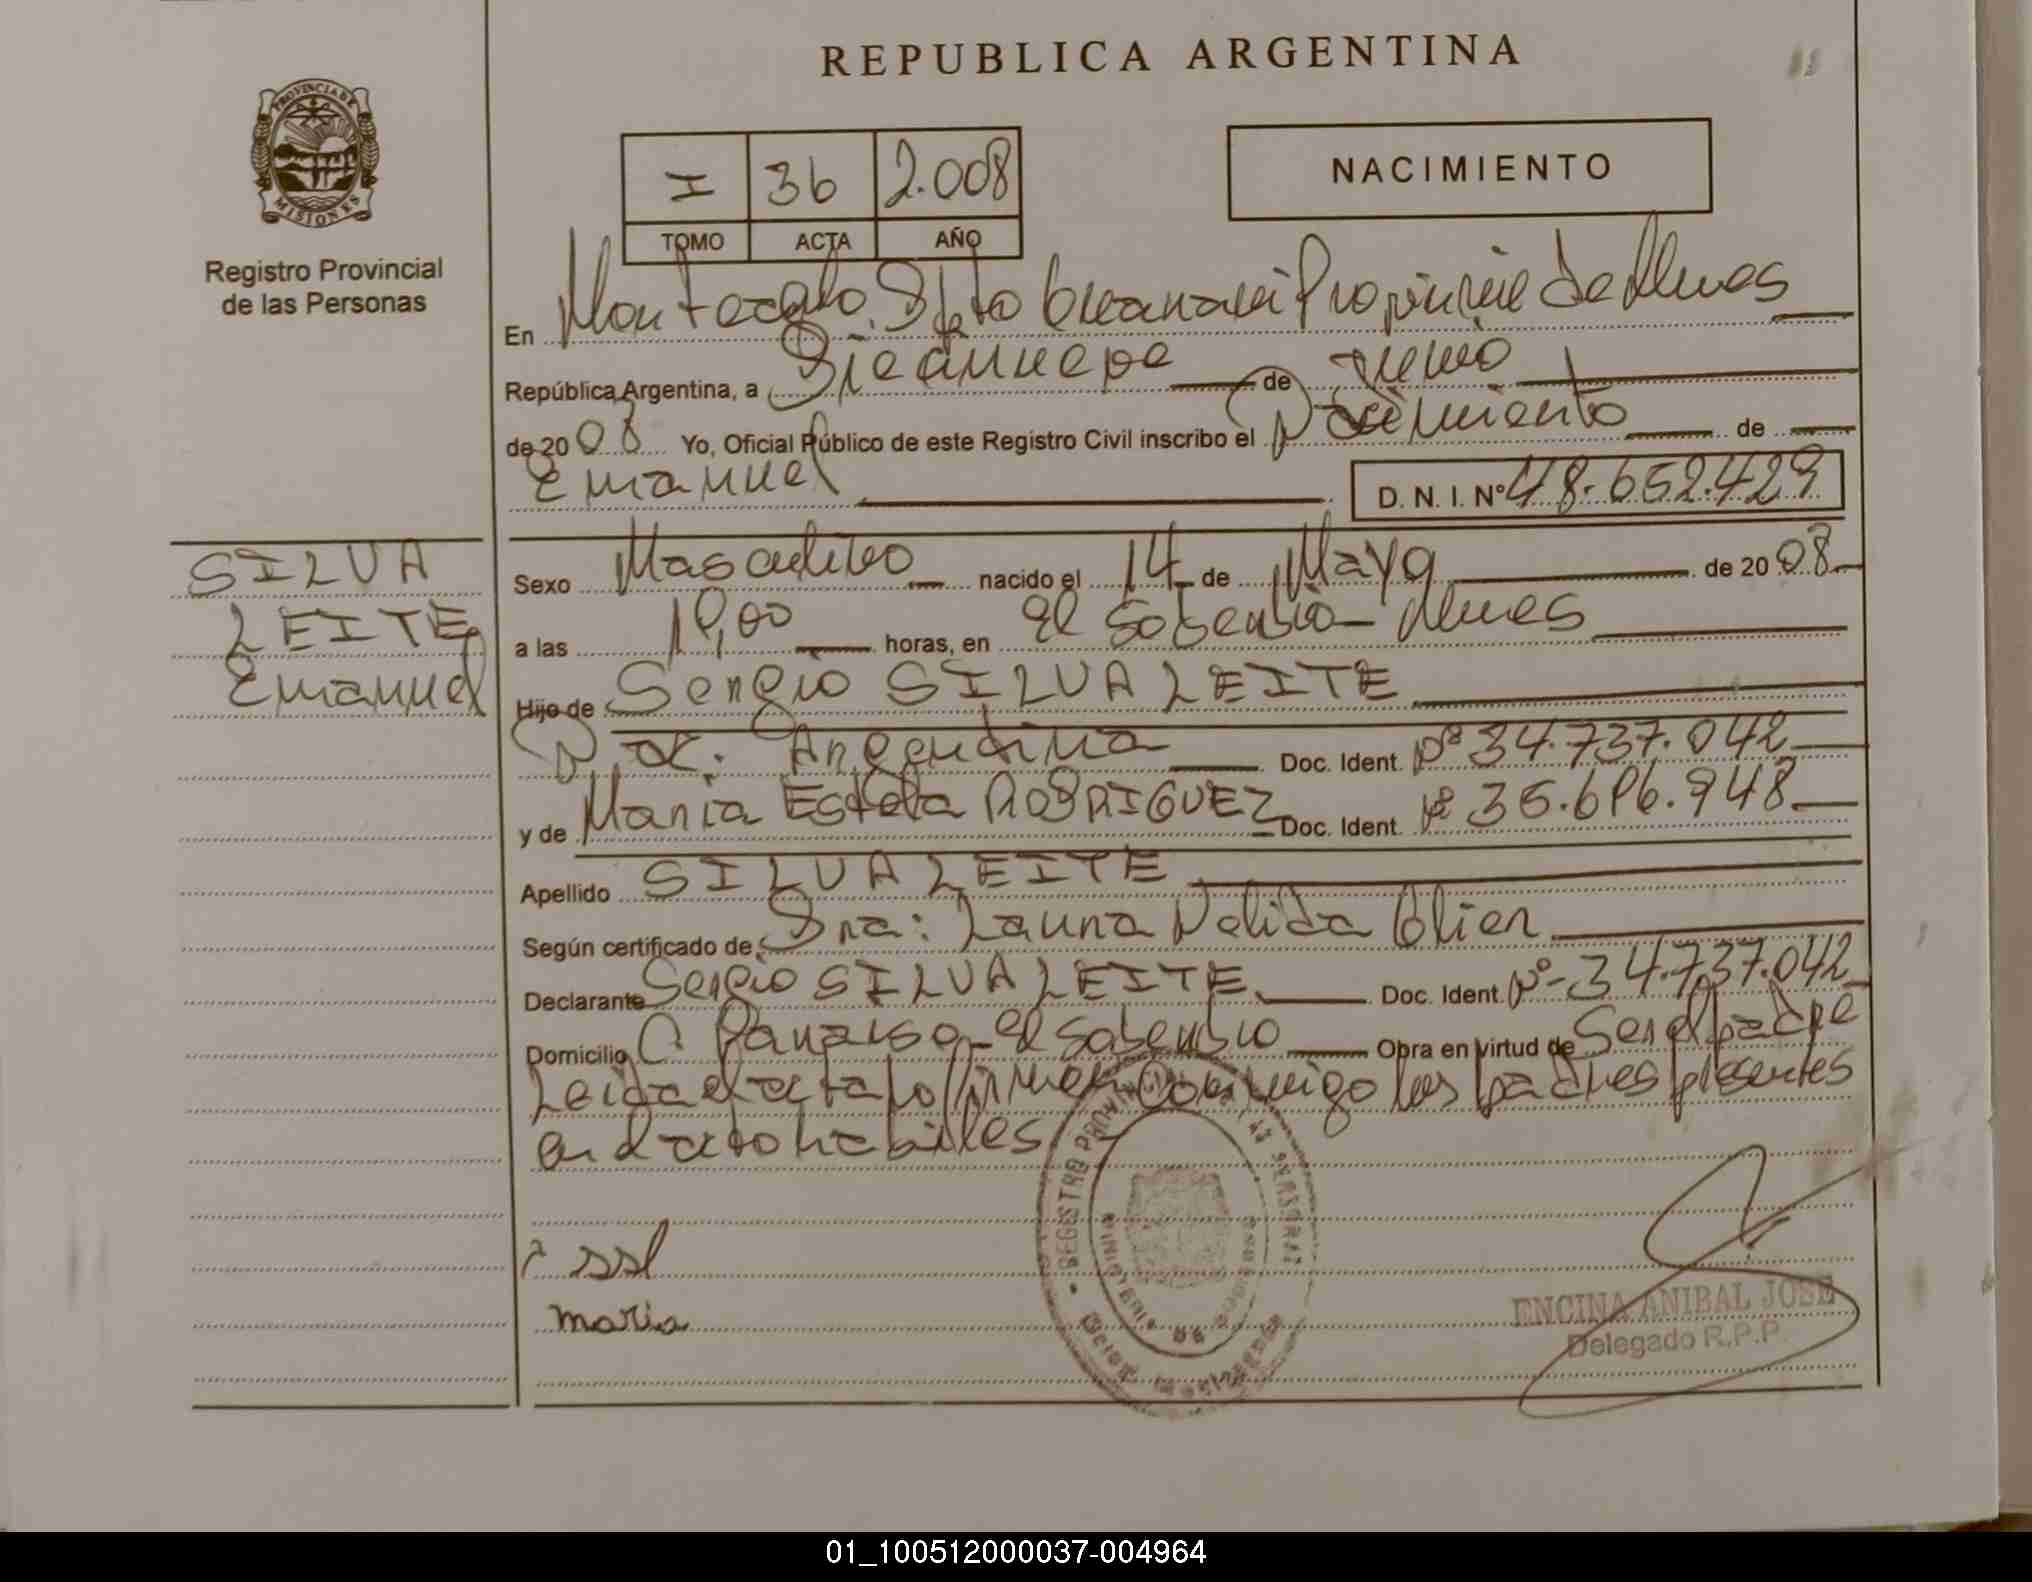 REPUBLICA ARGENTINA
PROVINCIA DE MISIONES
Registro Provincial
de las Personas
I 36 2.008
TOMO ACTA AÑO
NACIMIENTO
En Montecarlo, Dpto
República Argentina, a Diecinueve de Junio
de 2008 Yo, Oficial Público de este Registro Civil inscribo el Nacimiento de
Emanuel D. N. I. Nº 48.652.429
SILVA
LEITE
Emanuel
Sexo Masculino nacido el 14 de Mayo de 2008
a las horas, en El Soberbio
Hijo de Sergio SILVA LEITE
Argentina Doc. Ident. Nº 34.737.042
y de Maria Estela RODRIGUEZ Doc. Ident. Nº
Apellido SILVA LEITE
Según certificado de Sra: Laura Nelida
Declarante Sergio SILVA LEITE Doc. Ident. Nº 34.737.042
Domicilio C. Paraiso El Soberbio Obra en virtud de Ser el padre
Leida el acta conmigo los padres presentes
habiles
ssl
maria
REGISTRO
ENCINA ANIBAL JOSE
Delegado R.P.P.
01_100512000037-004964